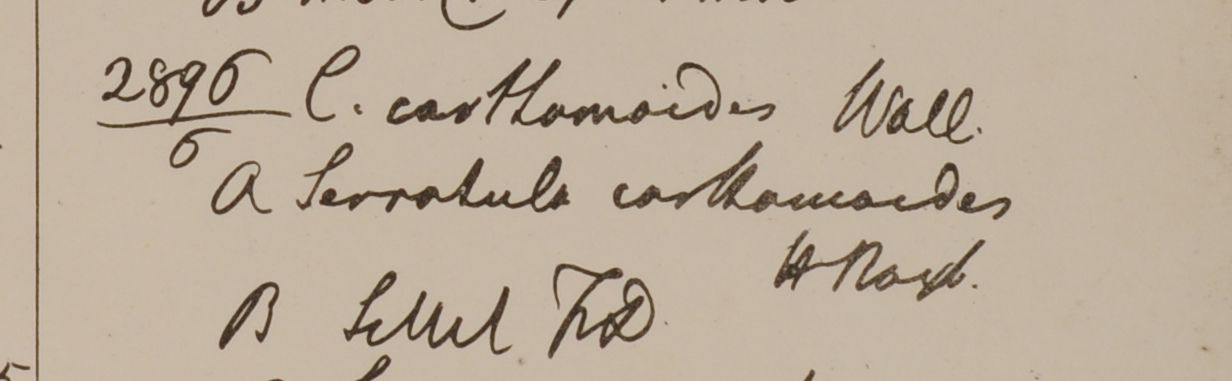 2896 C. carthamoides Wall.
6
A Serratula carthamoides
H Roxb.
B Sillet